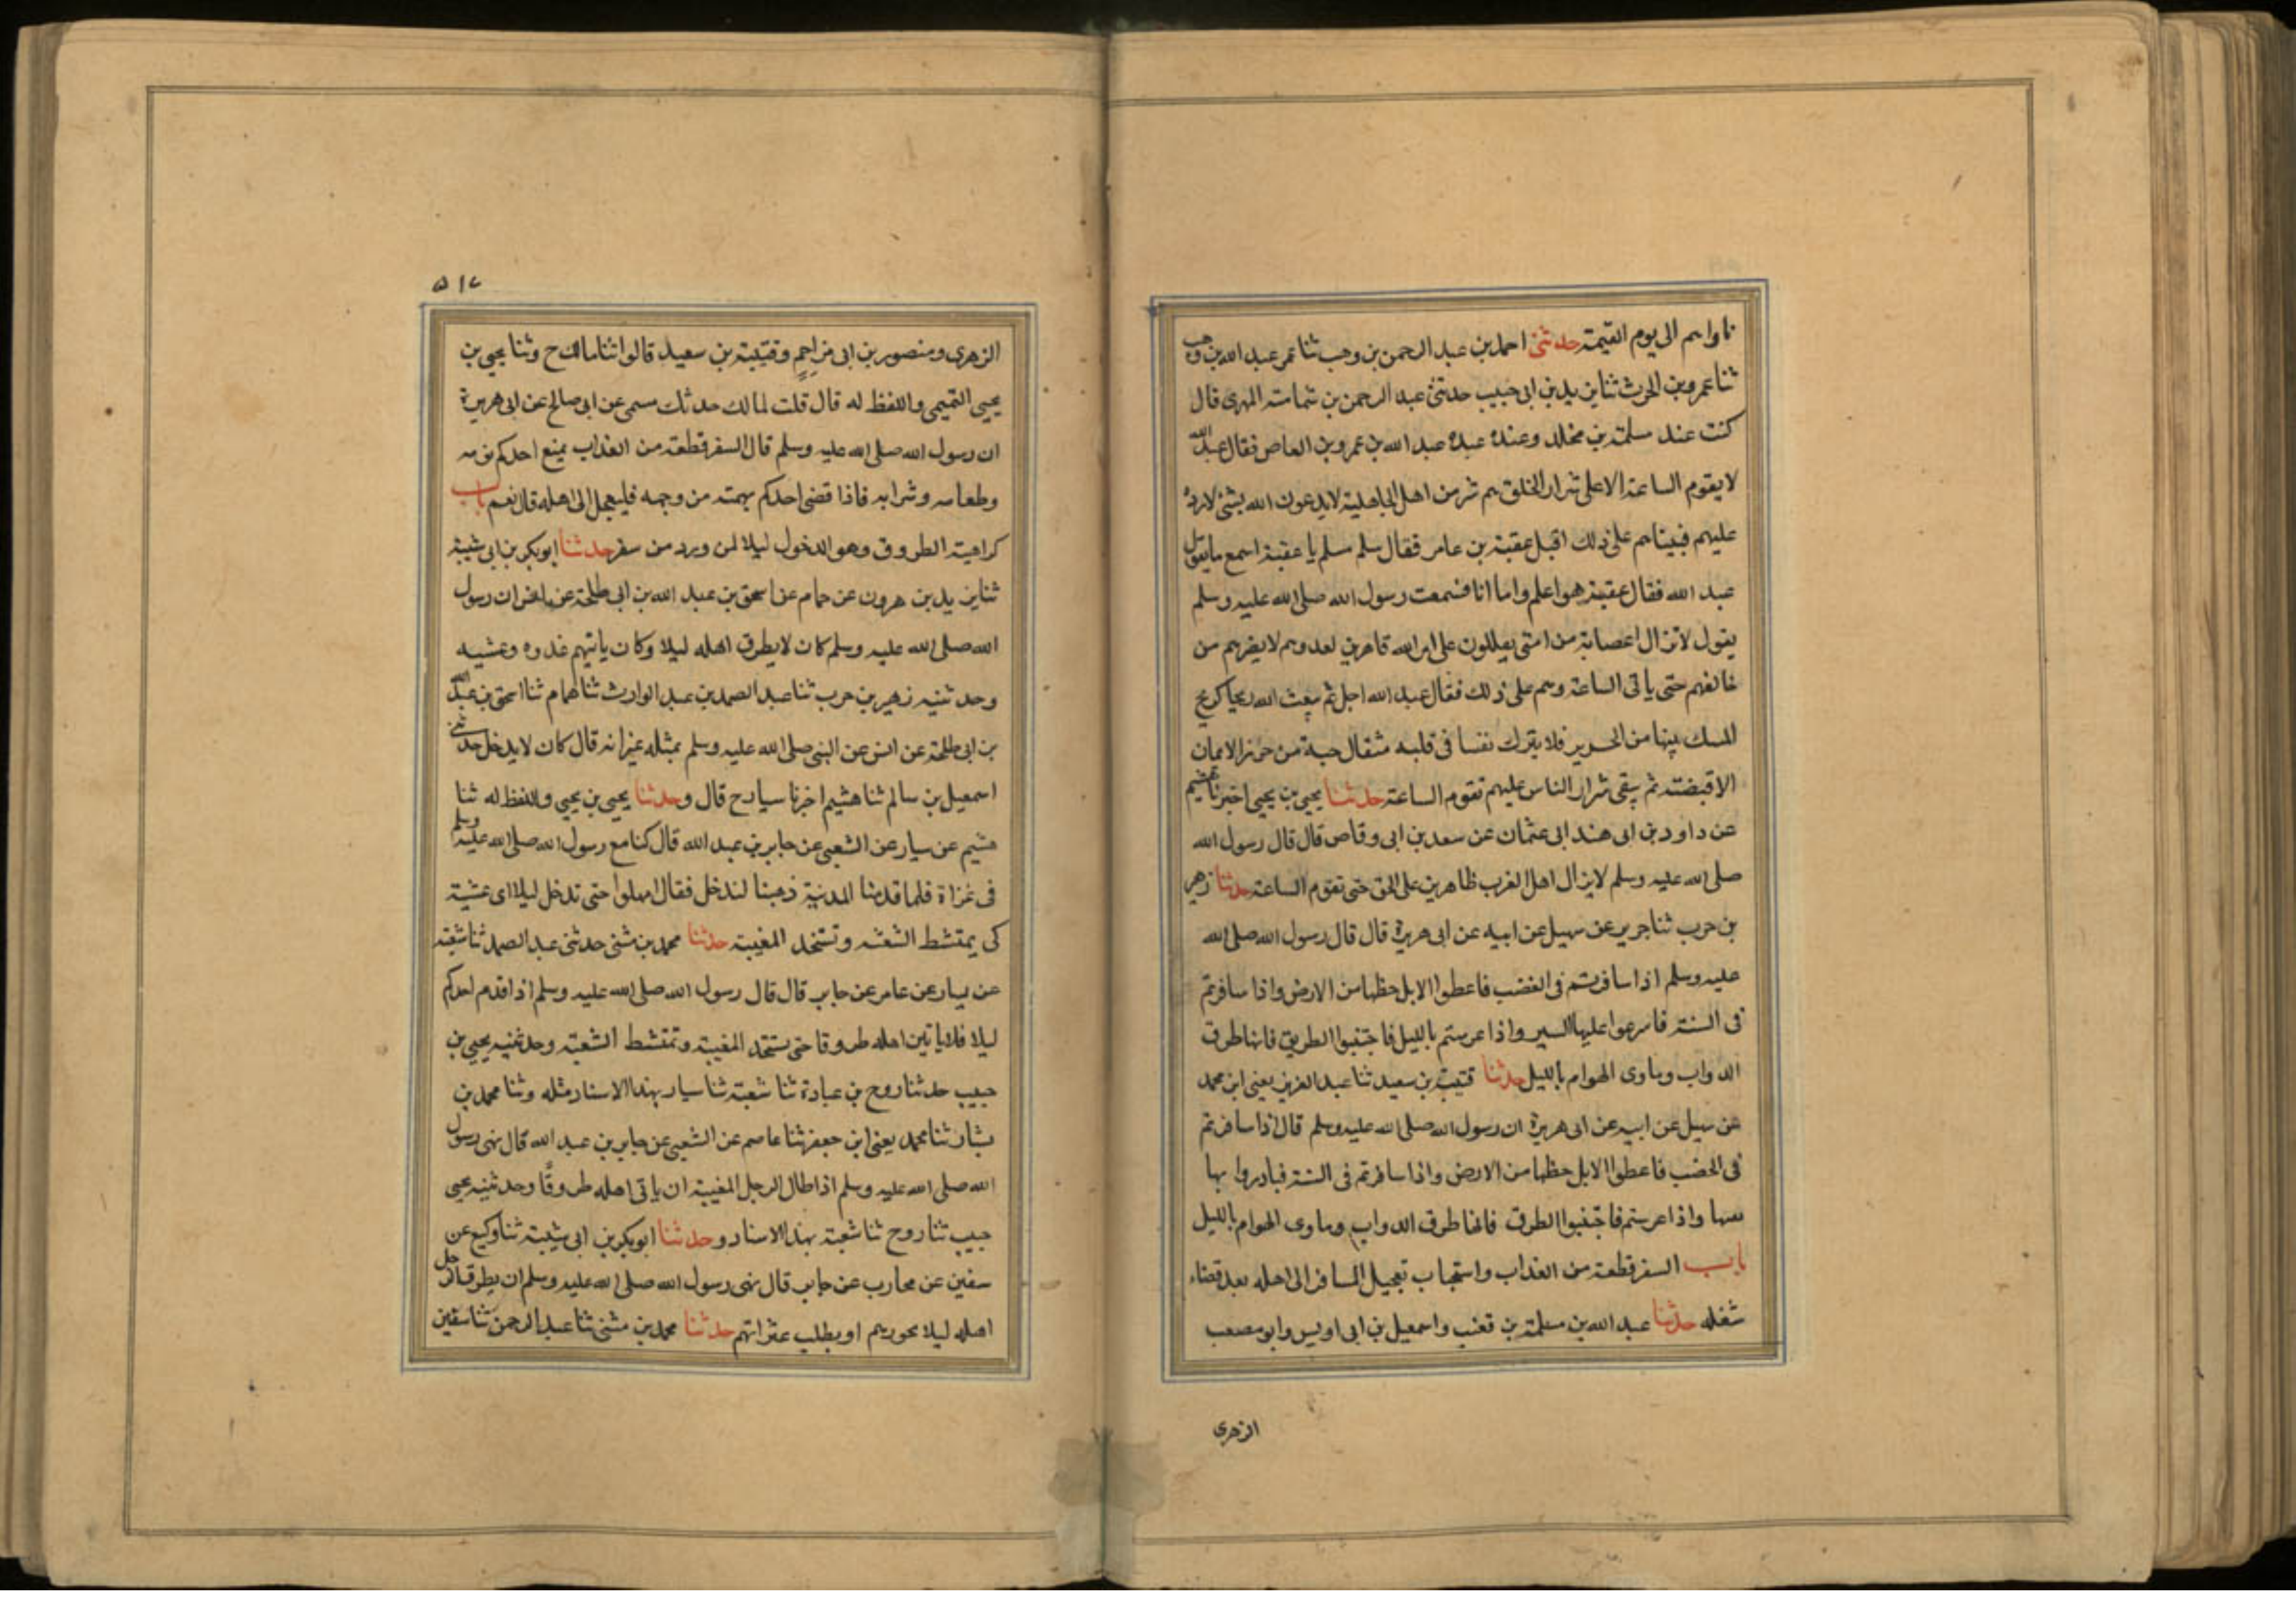 ناواهم الى يوم القيمة حدثنى احمد بن عبد الرحمن بن وهب ثنا عمر عبد الله بن وهب
ثنا عمرو بن الحرث ثنا يزيد بن ابى حبيب حدثنى عبد الرحمن بن شماسته المهرى قال
كنت عند مسلمة بن مخلد وعنده عبده عبد الله بن عمرو بن العاص فقال عبد الله
لا يقوم الساعة الا على شرار الخلق هم شر من اهل الجاهلية لا يدعون الله بشئ لا رده
عليهم فبيناهم على ذلك اقبل عقبة بن عامر فقال سلم مسلم يا عقبة اسمع ما يقول
عبد الله فقال عقبة هو اعلم واما انا فسمعت رسول الله صلى الله عليه وسلم
يقول لا تزال اعصابة من امتى يعللون على امر الله قاهرين لعدوهم لا يضرهم من
خالفهم حتى ياتى الساعة وهم على ذلك فقال عبد الله اجل ثم يبعث الله ريحا كريح
المسك مسها من الحرير فلا يترك نفسا فى قلبه مثقال حبة من الايمان
الا قبضته ثم يبقى شرار الناس عليهم تقوم الساعة حدثنا يحيى بن يحيى اخبرنا هشيم
عن داود بن ابى هند ابى عثمان عن سعد بن ابى وقاص قال قال رسول الله
صلى الله عليه وسلم لا يزال اهل الغرب ظاهرين على الحق حتى تقوم الساعة حدثنا زهير
بن حرب ثنا جرير عن سهيل عن ابيه عن ابى هريرة قال قال رسول الله صلى الله
عليه وسلم اذا سافرتم فى الغضب فاعطوا الابل حظها من الارض واذا سافرتم
فى السنة فاسرعوا عليها السير واذا عرستم بالليل فاجتنبوا الطريق فانها طرق
الدواب وماوى الهوام بالليل حدثنا قتيبة بن سعيد ثنا عبد العزيز يعنى ابن محمد
عن سهيل عن ابيه عن ابى هريرة ان رسول الله صلى الله عليه وسلم قال اذا سافرتم
فى الخضب فاعطوا الابل حظها من الارض واذا سافرتم فى السنة فبادروا بها
واذا عرستم فاجتنبوا الطرق فانها طرق الدواب وماوى الهوام بالليل
باب السفر قطعة من العذاب واستحباب تعجيل المسافر الى اهله بعد قضاء
شغله حدثنا عبد الله بن مسلمة بن قعنب واسمعيل بن ابى اويس وابو مصعب
الزهرى
٥١٧
الزهرى ومنصور بن ابى مزاحم وقتيبة بن سعيد قالوا ثنا مالك ح وثنا يحيى بن
يحيى التميمى واللفظ له قال قلت لمالك حدثك سمى عن ابى صالح عن ابى هريرة
ان رسول الله صلى الله عليه وسلم قال السفر قطعة من العذاب يمنع احدكم نومه
وطعامه وشرابه فاذا قضى احدكم نهمته من وجهه فليعجل الى اهله قال نعم باب
كراهية الطروق وهو الدخول ليلا لمن ورد من سفر حدثنا ابو بكر بن ابى شيبة
ثنا يزيد بن هرون عن همام عن اسحق بن عبد الله بن ابى طلحة عن انس ان رسول
الله صلى الله عليه وسلم كان لا يطرق اهله ليلا وكان ياتيهم غدوه وعشيه
وحدثنيه زهير بن حرب ثنا عبد الصمد بن عبد الوارث ثنا همام ثنا اسحق بن عبد الله
بن ابى طلحة عن انس عن النبى صلى الله عليه وسلم بمثله غير انه قال كان لا يدخل حدثنى
اسمعيل بن سالم ثنا هشيم اخبرنا سيار ح قال وحدثنا يحيى بن يحيى واللفظ له ثنا
هشيم عن سيار عن الشعبى عن جابر بن عبد الله قال كنا مع رسول الله صلى الله عليه وسلم
فى غزاة فلما قدمنا المدينة ذهبنا لندخل فقال امهلوا حتى تدخل ليلا اى عشية
كى يمتشط الشعثه وتستحد المغيبة حدثنا محمد بن مثنى حدثنى عبد الصمد ثنا شعبة
عن سيار عن عامر عن جابر قال قال رسول الله صلى الله عليه وسلم اذا قدم احدكم
ليلا فلا ياتين اهله طروقا حتى تستحد المغيبة وتمتشط الشعثة وحدثنيه يحيى بن
حبيب حدثنا روح بن عبادة ثنا شعبة ثنا سيار بهذا الاسناد مثله وثنا محمد بن
بشار ثنا محمد يعنى ابن جعفر ثنا عاصم عن الشعبى عن جابر بن عبد الله قال نهى رسول
الله صلى الله عليه وسلم اذا طال الرجل المغيبة ان ياتى اهله طروقا وحدثنيه يحيى
حبيب ثنا روح ثنا شعبة بهذا الاسناد وحدثنا ابو بكر بن ابى شيبة ثنا وكيع عن
سفين عن محارب عن جابر قال نهى رسول الله صلى الله عليه وسلم ان يطرق الرجل
اهله ليلا او يطلب عثراتهم حدثنا محمد بن مثنى ثنا عبد الرحمن ثنا سفين